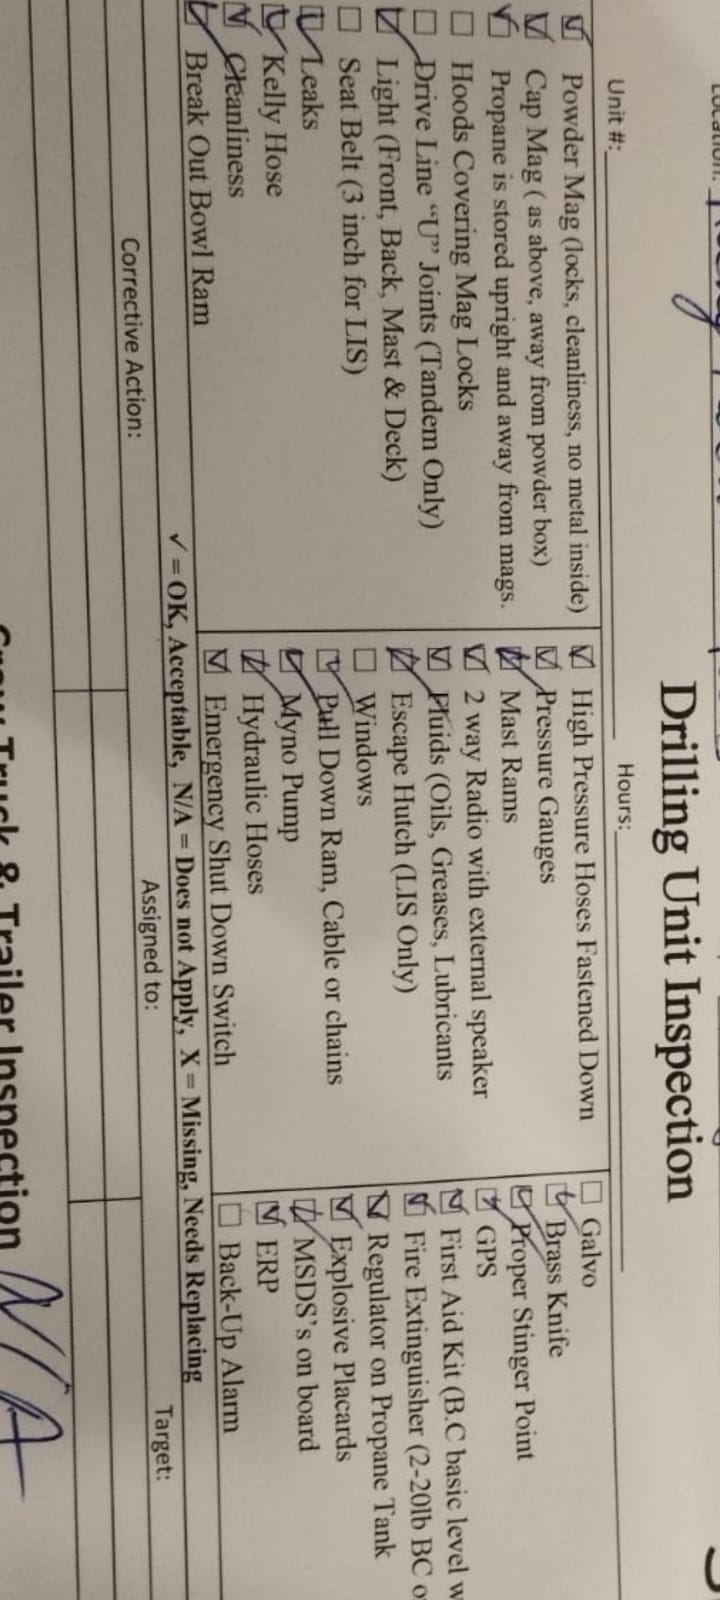 Location:
Drilling Unit Inspection
Unit #: Hours:
☑ Powder Mag (locks, cleanliness, no metal inside)
☑ Cap Mag ( as above, away from powder box)
☑ Propane is stored upright and away from mags.
☐ Hoods Covering Mag Locks
☐ Drive Line “U” Joints (Tandem Only)
☑ Light (Front, Back, Mast & Deck)
☐ Seat Belt (3 inch for LIS)
☑ Leaks
☑ Kelly Hose
☑ Cleanliness
☑ Break Out Bowl Ram
☑ High Pressure Hoses Fastened Down
☑ Pressure Gauges
☑ Mast Rams
☑ 2 way Radio with external speaker
☑ Fluids (Oils, Greases, Lubricants
☑ Escape Hutch (LIS Only)
☐ Windows
☑ Pull Down Ram, Cable or chains
☑ Myno Pump
☑ Hydraulic Hoses
☑ Emergency Shut Down Switch
☐ Galvo
☑ Brass Knife
☑ Proper Stinger Point
☑ GPS
☑ First Aid Kit (B.C basic level w
☑ Fire Extinguisher (2-20lb BC o
☑ Regulator on Propane Tank
☑ Explosive Placards
☑ MSDS’s on board
☑ ERP
☐ Back-Up Alarm
✓ = OK, Acceptable, N/A = Does not Apply, X = Missing, Needs Replacing
Corrective Action: Assigned to: Target:
Crew Truck & Trailer Inspection N/A